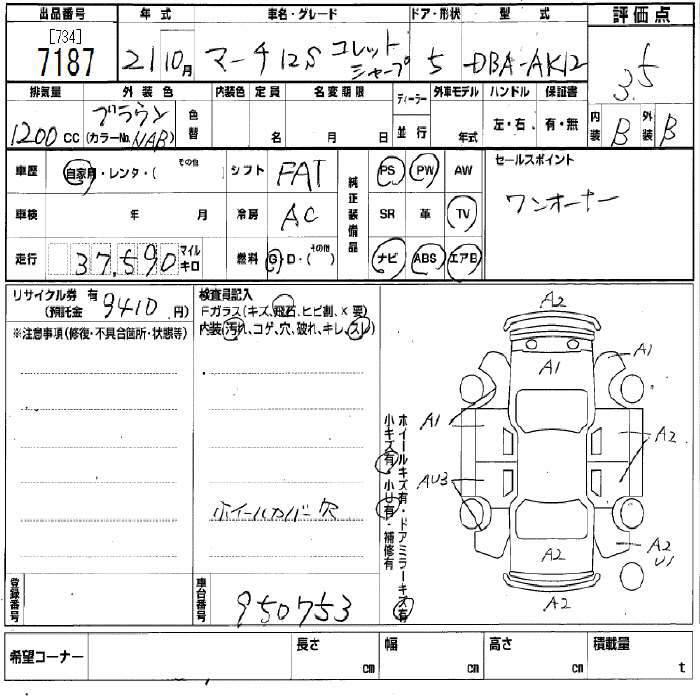 出品番号 年式 車名・グレード ドア・形状 型式 評価点
[734]
7187 21 10月 マーチ 12S コレット シャープ 5 DBA-AK12 3.5
排気量 外装色 内装色 定員 名変期限 ディーラー 外車モデル ハンドル 保証書
1200 CC ブラウン (カラーNo. NAB) 色替 名 月 日 並行 年式 左・右 有・無 内装 B 外装 B
車歴 自家用・レンタ・( その他 シフト FAT 純正装備品 PS PW AW セールスポイント
車検 年 月 冷房 AC SR 革 TV ワンオーナー
走行 37,590 マイル キロ 燃料 G・D・( その他 ) ナビ ABS エアB
リサイクル券 有 (預託金 9410 円)
※注意事項(修復・不具合箇所・状態等)
検査員記入
Fガラス(キズ、飛石、ヒビ割、X要)
内装(汚れ、コゲ、穴、破れ、キレ、スレ)
ホイールカバー欠
ホイールキズ有・ドアミラーキズ有
小キズ有・小U有・補修有
A2
A1
A1
A1
A2
AU3
A2
A2
U1
A2
登録番号 車台番号 950753
希望コーナー 長さ cm 幅 cm 高さ cm 積載量 t